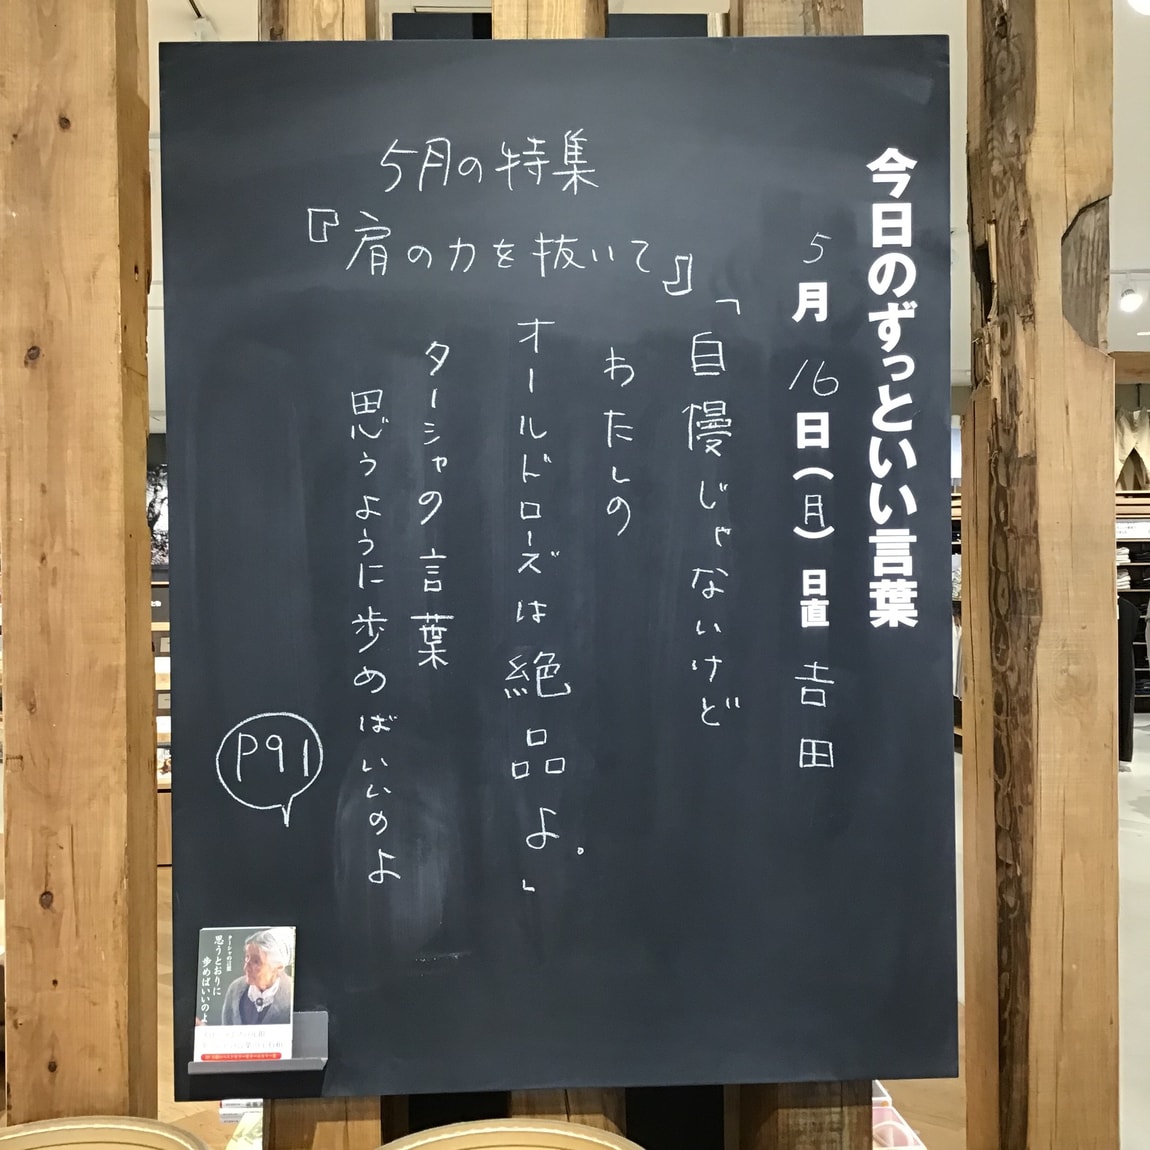 今日のずっといい言葉
5月16日(月) 日直 吉田
5月の特集
『肩の力を抜いて』
「自慢じゃないけど
わたしの
オールドローズは絶品よ。」
ターシャの言葉
思うように歩めばいいのよ
P91
ターシャの言葉
思うとおりに
歩めばいいのよ